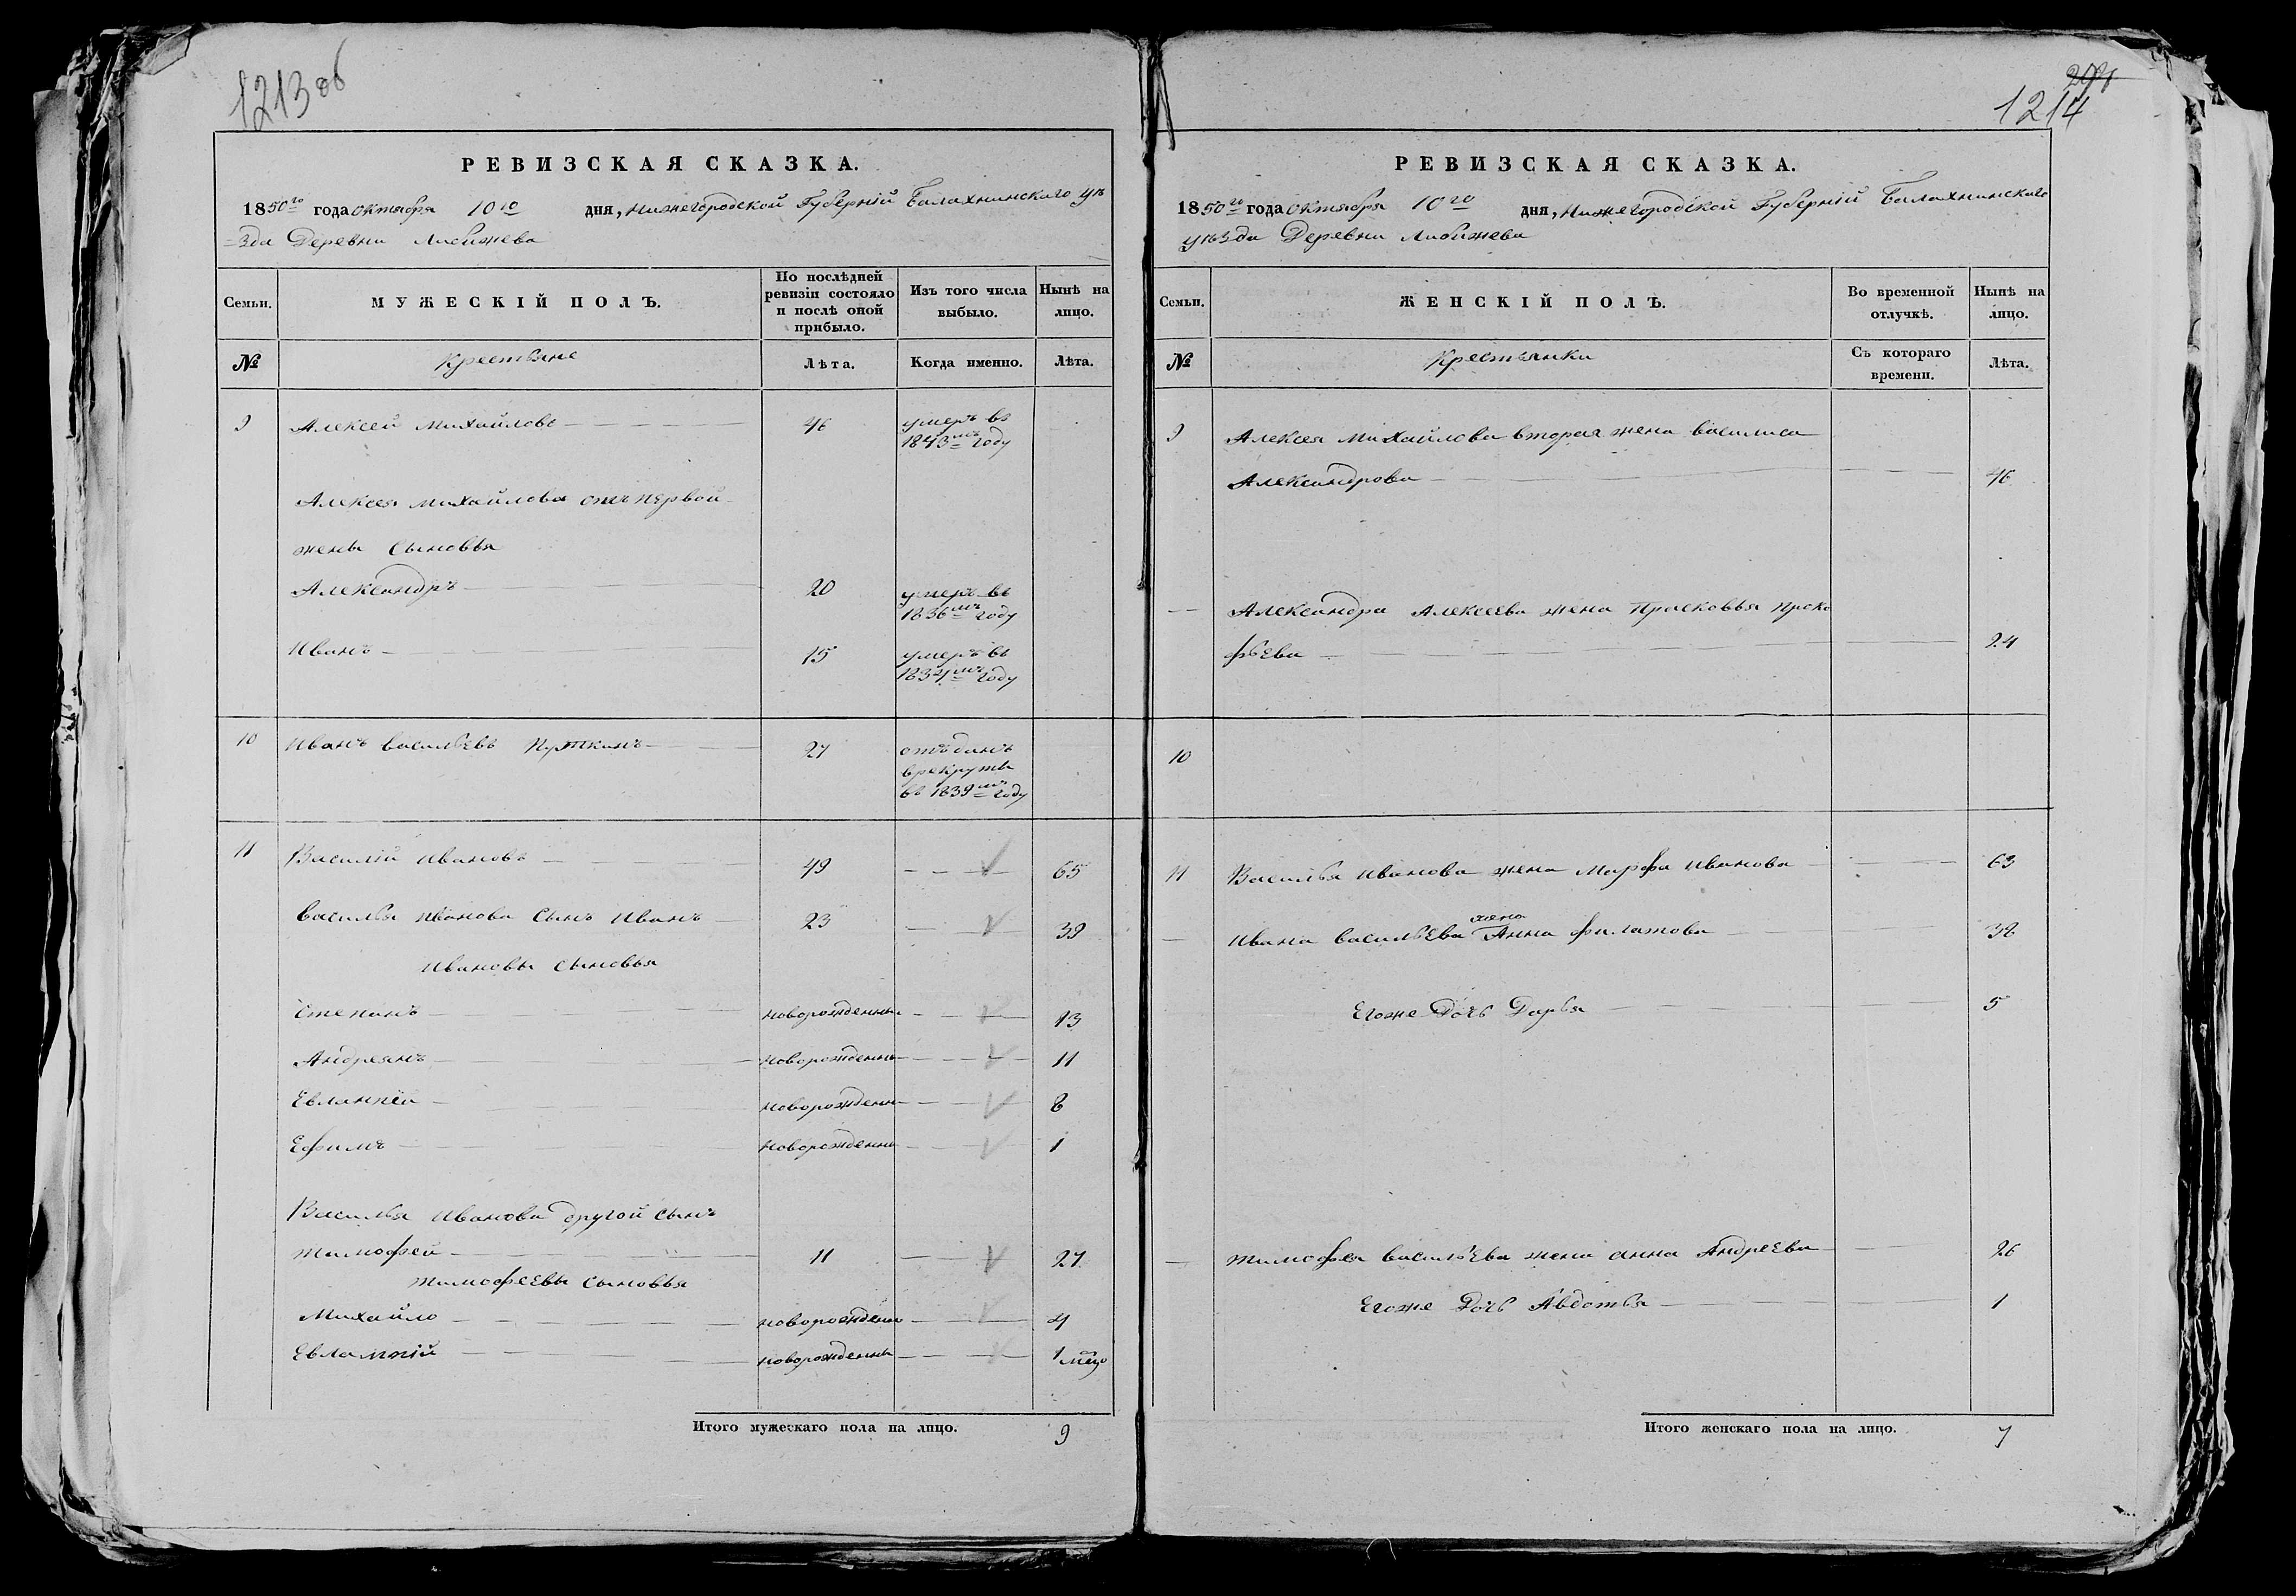 1213 об
РЕВИЗСКАЯ СКАЗКА.
1850го года октября 10го дня, Нижегородской Губерніи Балахнинскаго уѣ
=зда Деревни
Семьи.
МУЖЕСКІЙ ПОЛЪ.
По послѣдней ревизіи состояло и послѣ оной прибыло.
Изъ того числа выбыло.
Нынѣ на лицо.
№
Крестьяне
Лѣта.
Когда именно.
Лѣта.
9 Алексей Михайловъ 46 умеръ въ
1843мъ году
Алексея Михайлова отъ первой
жены сыновья
Александръ 20 умеръ въ
1836мъ году
Иванъ 15 умеръ въ
1834мъ году
10 Иванъ Васильевъ 27 отъданъ
врекруты
въ 1839мъ году
11 Василій Ивановъ 49 65
Василья Иванова сынъ Иванъ 23 39
Ивановы сыновья
Степанъ новорожденны 13
Андреянъ новорожденны 11
Евлампій новорожденн 8
Ефимъ новорожденны 1
Василья Иванова другой сынъ
Тимофей 11 27
Тимофеевы сыновья
Михайло новорожденн 4
Евлампій новорожденны 1 мѣсц
Итого мужескаго пола на лицо. 9
1214
РЕВИЗСКАЯ СКАЗКА.
1850го года октября 10го дня, Нижегородской Губерніи Балахнинскаго
уѣзда Деревни
Семьи.
ЖЕНСКІЙ ПОЛЪ.
Во временной отлучкѣ.
Нынѣ на лицо.
№
Крестьянки
Съ котораго времени.
Лѣта.
9 Алексея Михайлова вторая жена Василиса
Александрова 46
Александра Алексеева жена Прасковья Проко
фьева 24
10
11 Василья Иванова жена Марфа Иванова 63
жена
Ивана Васильева Анна Филатова 38
Егоже Дочь Дарья 5
Тимофея Васильева жена Анна Андреева 26
Егоже Дочь Авдотья 1
Итого женскаго пола на лицо. 7